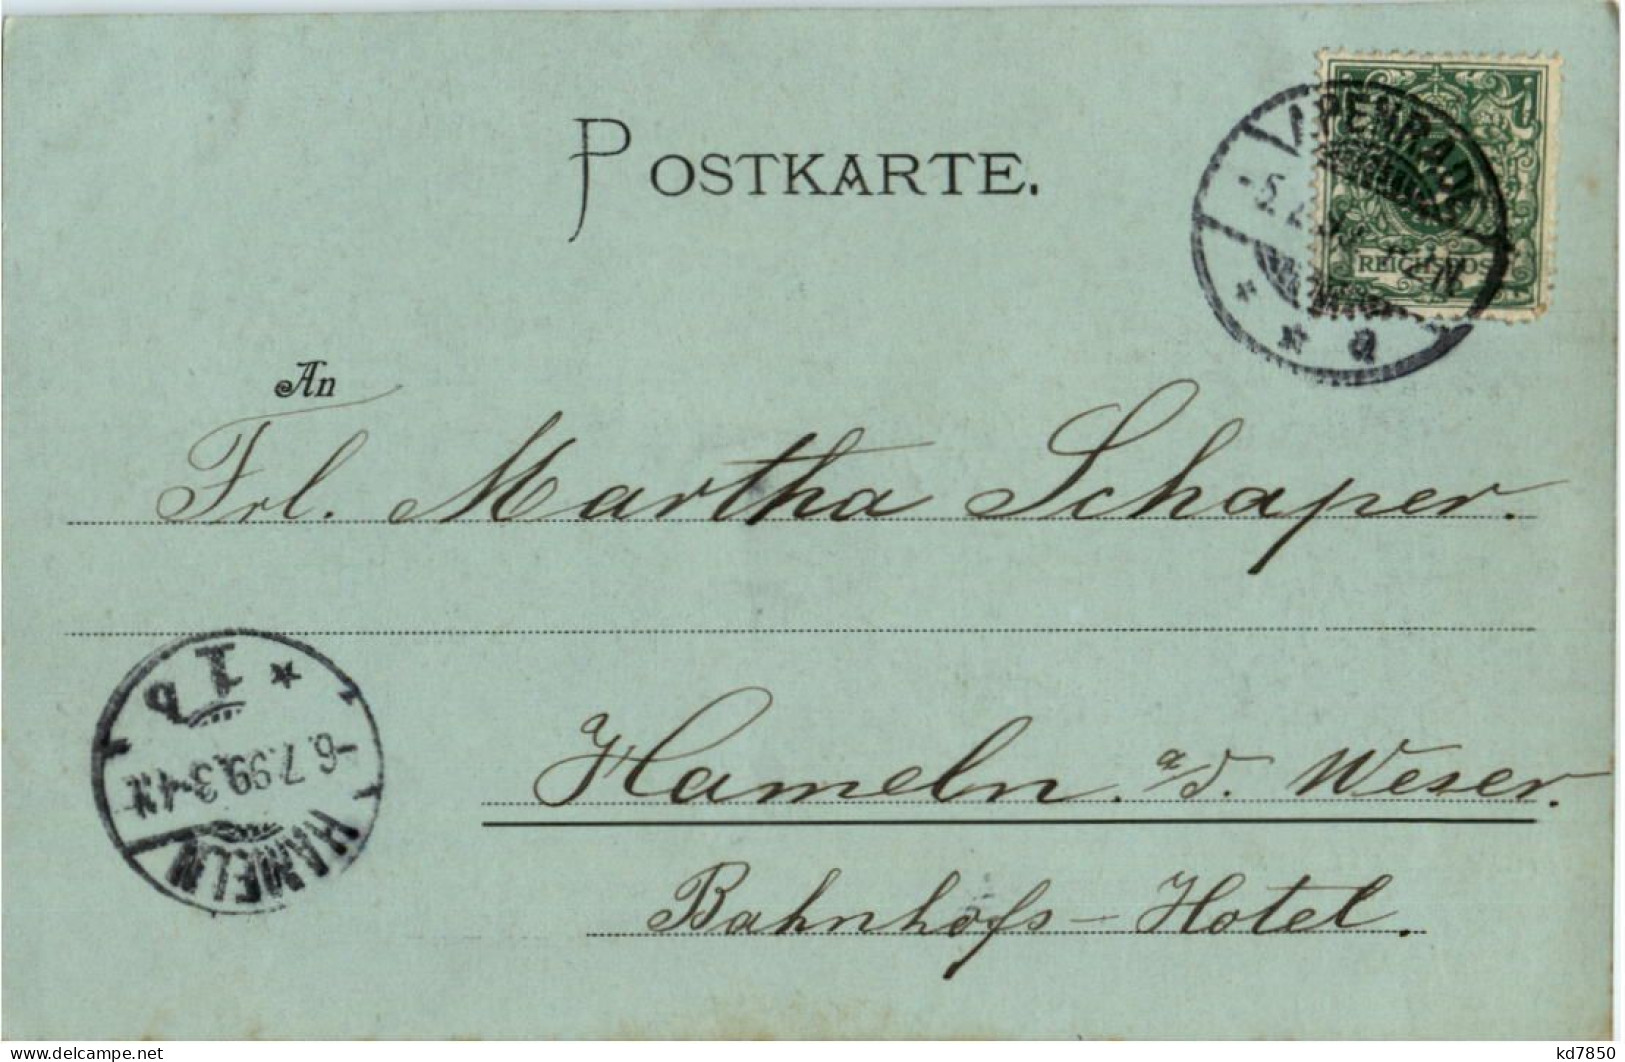 POSTKARTE.
APENRADE
REICHSPOST
a
An
Frl. Martha Schaper.
Hameln. a/d. Weser.
Bahnhofs-Hotel.
HAMELN
6.7.99. 3-4N.
1 b
delcampe.net
kd7850